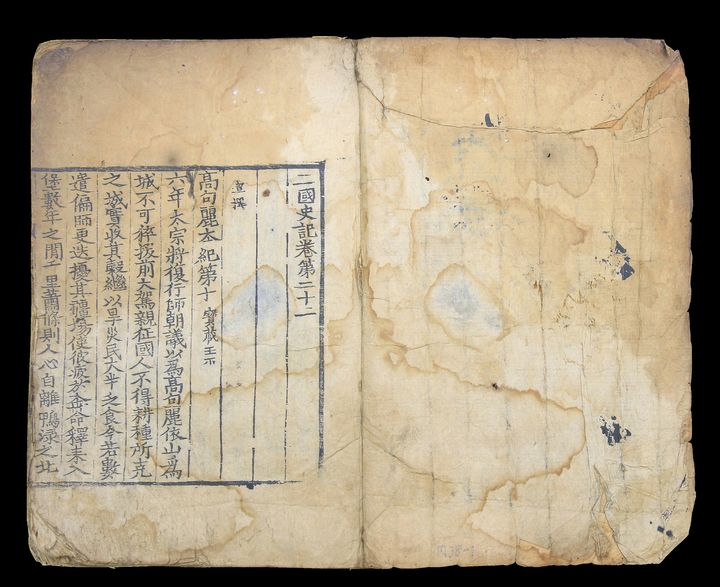 二國史記卷第二十二
宣撰
高句麗本紀第十 寶臧王下
六年太宗將復行師朝議以爲高句麗依山爲
城不可猝拔前大駕親征國人不得耕種所克
之城實收其穀繼以旱災民太半乏食今若數
遣偏師更迭擾其疆場使彼疲於奔命釋耒入
堡數年之間千里蕭條則人心自離鴨渌之北